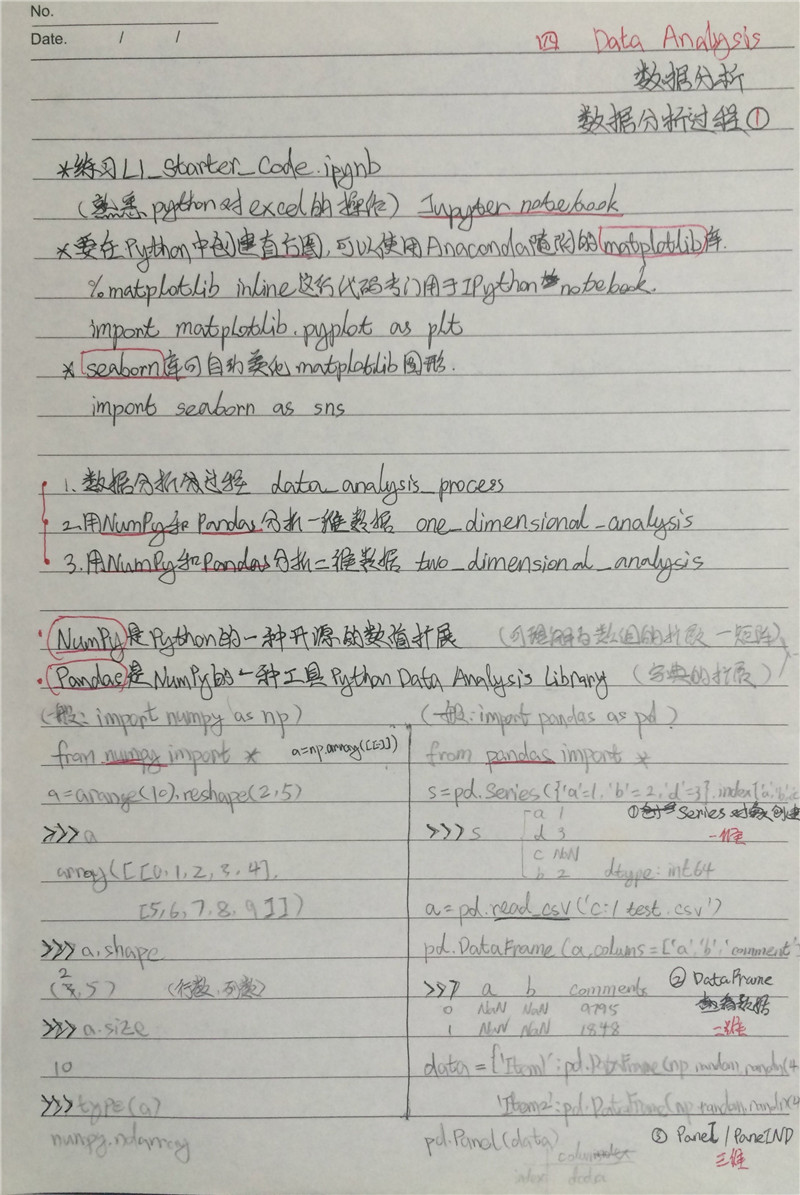 No.
Date. / /
四 Data Analysis
数据分析
数据分析过程①
*练习L1_Starter_Code.ipynb
(熟悉python对excel的操作) Jupyter notebook
*要在Python中创建直方图,可以使用Anaconda随附的matplotlib库.
%matplotlib inline 这行代码专门用于IPython notebook.
import matplotlib.pyplot as plt
* seaborn库可自动美化matplotlib图形.
import seaborn as sns
1.数据分析过程 data_analysis_process
2.用NumPy和Pandas分析一维数据 one_dimensional_analysis
3.用NumPy和Pandas分析二维数据 two_dimensional_analysis
NumPy是Python的一种开源的数值扩展 (可理解为数组的扩展 — 矩阵)
Pandas是NumPy的一种工具Python Data Analysis Library (字典的扩展)
(一般: import numpy as np)
from numpy import * a=np.array([[]])
a=arange(10).reshape(2,5)
>>> a
array([[0,1,2,3,4],
[5,6,7,8,9]])
>>> a.shape
(2,5) (行数,列数)
>>> a.size
10
>>> type(a)
numpy.ndarray
(一般: import pandas as pd)
from pandas import *
s=pd.Series({'a'=1,'b'=2,'d'=3},index['a','b',
① Series 创建
一维
>>> s a 1
d 3
c NaN
b 2 dtype: int64
a=pd.read_csv('c:/test.csv')
pd.DataFrame(a,colums=['a','b','comment'
>>> a b comments ② DataFrame
0 NaN NaN 9795
1 NaN NaN 1848 二维
data={'Item1':pd.DataFrame(np.random.randn(4
'Item2':pd.DataFrame(np.random.randn(4
pd.Panel(data) ③ Panel/PanelND
三维
index data